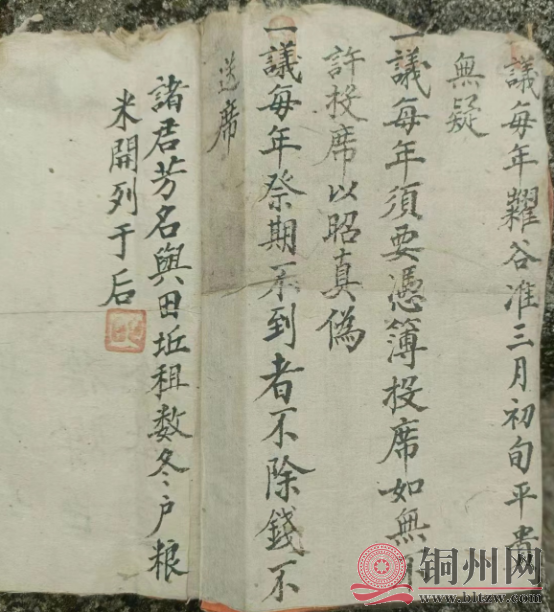 議每年糶谷准三月初旬平貴
無疑
一議每年須要憑簿投席如無
許投席以昭真偽
一議每年祭期不到者不除錢不
送席
諸君芳名與田坵租数冬户粮
米開列于后
铜州网
www.bltzw.com